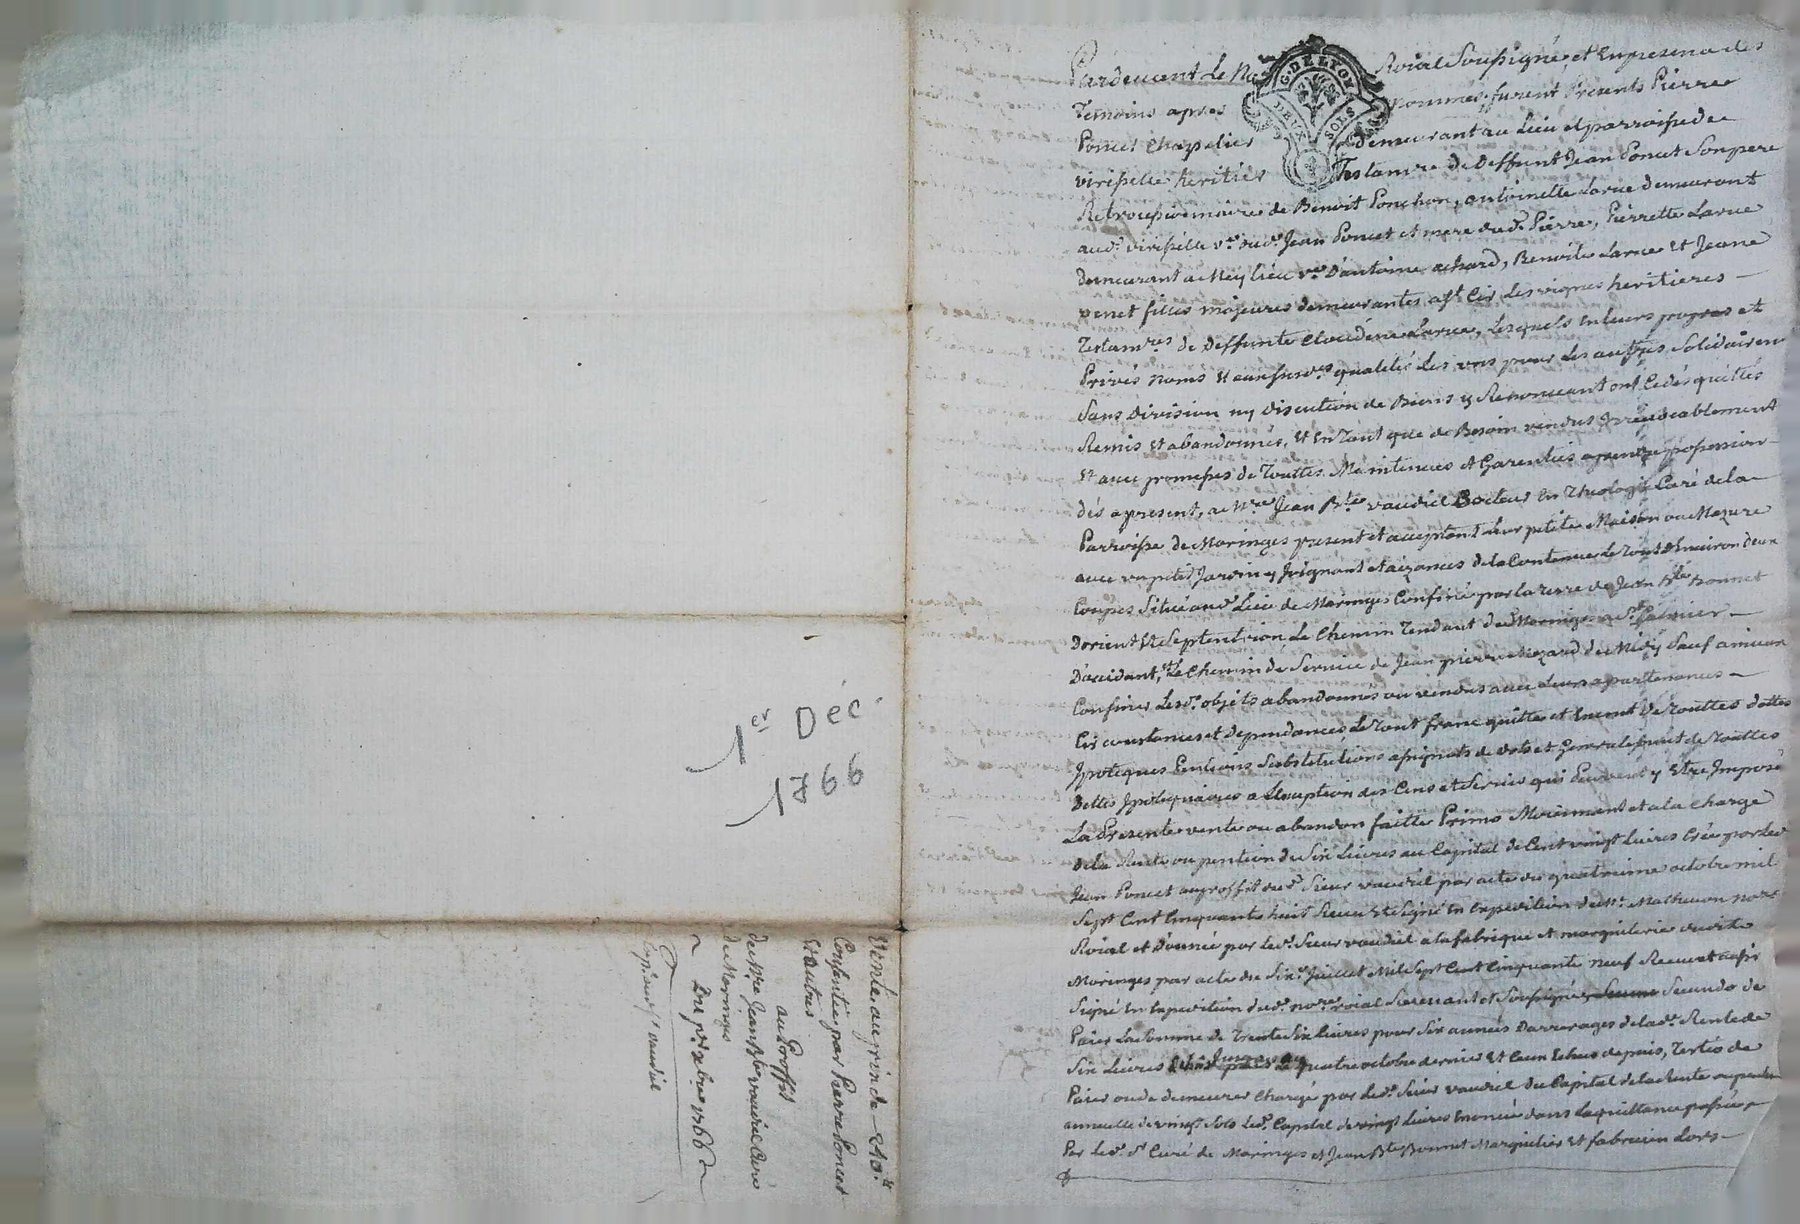 1er Déc
1766
Vente au prix de 210 ₶
Consentie par Pierre Poncet
et autres
au Proffit
de Mre Jean Bte vaudiel Curé
de Maringes
Du pr. xbre 1766
Expédié Sr vaudiel
G. DE LYON
DEUX SOLS
Pardevant Le No Roial Soussigné et En presence des
Temoins apres nommes, furent Presents Pierre
Poncet chapelier demeurant au Lieu et parroisse de
virisselle heritier Testamre de Deffunt Jean Poncet Son pere
Retrocessionnaire de Benoit Ponchon, antoinette Larue demeurant
aud. virisselle ve. dud. Jean Poncet et mere dud. Pierre, Pierrette Larue
demeurant a Meylieu ve. D'antoine achard, Benoite Larue Et Jeane
venet filles majeures demeurantes a St Cir Les vignes heritieres
Testamres de Deffunte Claudine Larue, Lesquels En leurs propres et
Privés noms Et aux susdes qualités Les uns pour Les autres Solidairemt
Sans Division ny discution de Biens y Renonceant ont Cedés quittés
Remis Et abandonnés, Et En Tant que de Besoin vendus Irrévocablement
Et avec promesses de Touttes Maintenues Et Garenties a prendre possession
dés apresent, a Mre Jean Bte vaudiel Docteur En Theologie Curé de la
Parroisse de Maringes present et acceptant Leur petite Maison ou Mazure
avec un petit Jardin y Joignant et aizances de la Contenue Le Tout d'Environ deux
Coupes Situé aud. Lieu de Maringes Confiné par la terre de Jean Bte Bonnet
Dorient Et Septentrion Le Chemin Tendant de Maringes a St. Galmier
D'accidant, Et Le Chemin de Service de Jean pierre de Midy Sauf a mieux
Confiner Lesd. objets abandonnés ou vendus avec Leurs apartenances
Circonstances et dependances Le Tout franc quitte et Exemt de Touttes dettes
Ipoteques Pentions Substitutions assignats de dots et Generalement de Touttes
Dettes Ipotequaires a L'exception des Cens et Servis qui Peuvent y Etre Imposé
La Presente vente ou abandon faitte Primo Moienant et a la charge
de la Rente ou pention de Six Livres au Capital de Cent vingt Livres Crée par led.
Jean Poncet au proffit dud. Sieur vaudiel par acte du quatrieme octobre mil
Sept Cent Cinquante huit Receu Et Signé En Expedition de Me. Mathevon nore
Roial et Donnée par Led. Sieur vaudiel a la fabrique et marguilerie dudit
Maringes par acte du Six Juillet Mil Sept Cent Cinquante neuf Receu et aussi
Signé En Expedition dud. nore roial Recevant et Soussigné, Secundo de
Paier La Somme de Trente Six Livres pour Six années D'arrerages de lad. Rente de
Six Livres Echus Jusques au quatre octobre dernier Et Ceux Echus depuis, Tertio de
Paier ou de demeurer Chargé par Led. Sieur vaudiel du Capital de la Rente ou pention
annuelle de vingt Sols Led. Capital de vingt Livres Enoncé dans La quittance passée
Par Led. Sr Curé de Maringes et Jean Bte Bonnet Marguilier Et fabricien Lors